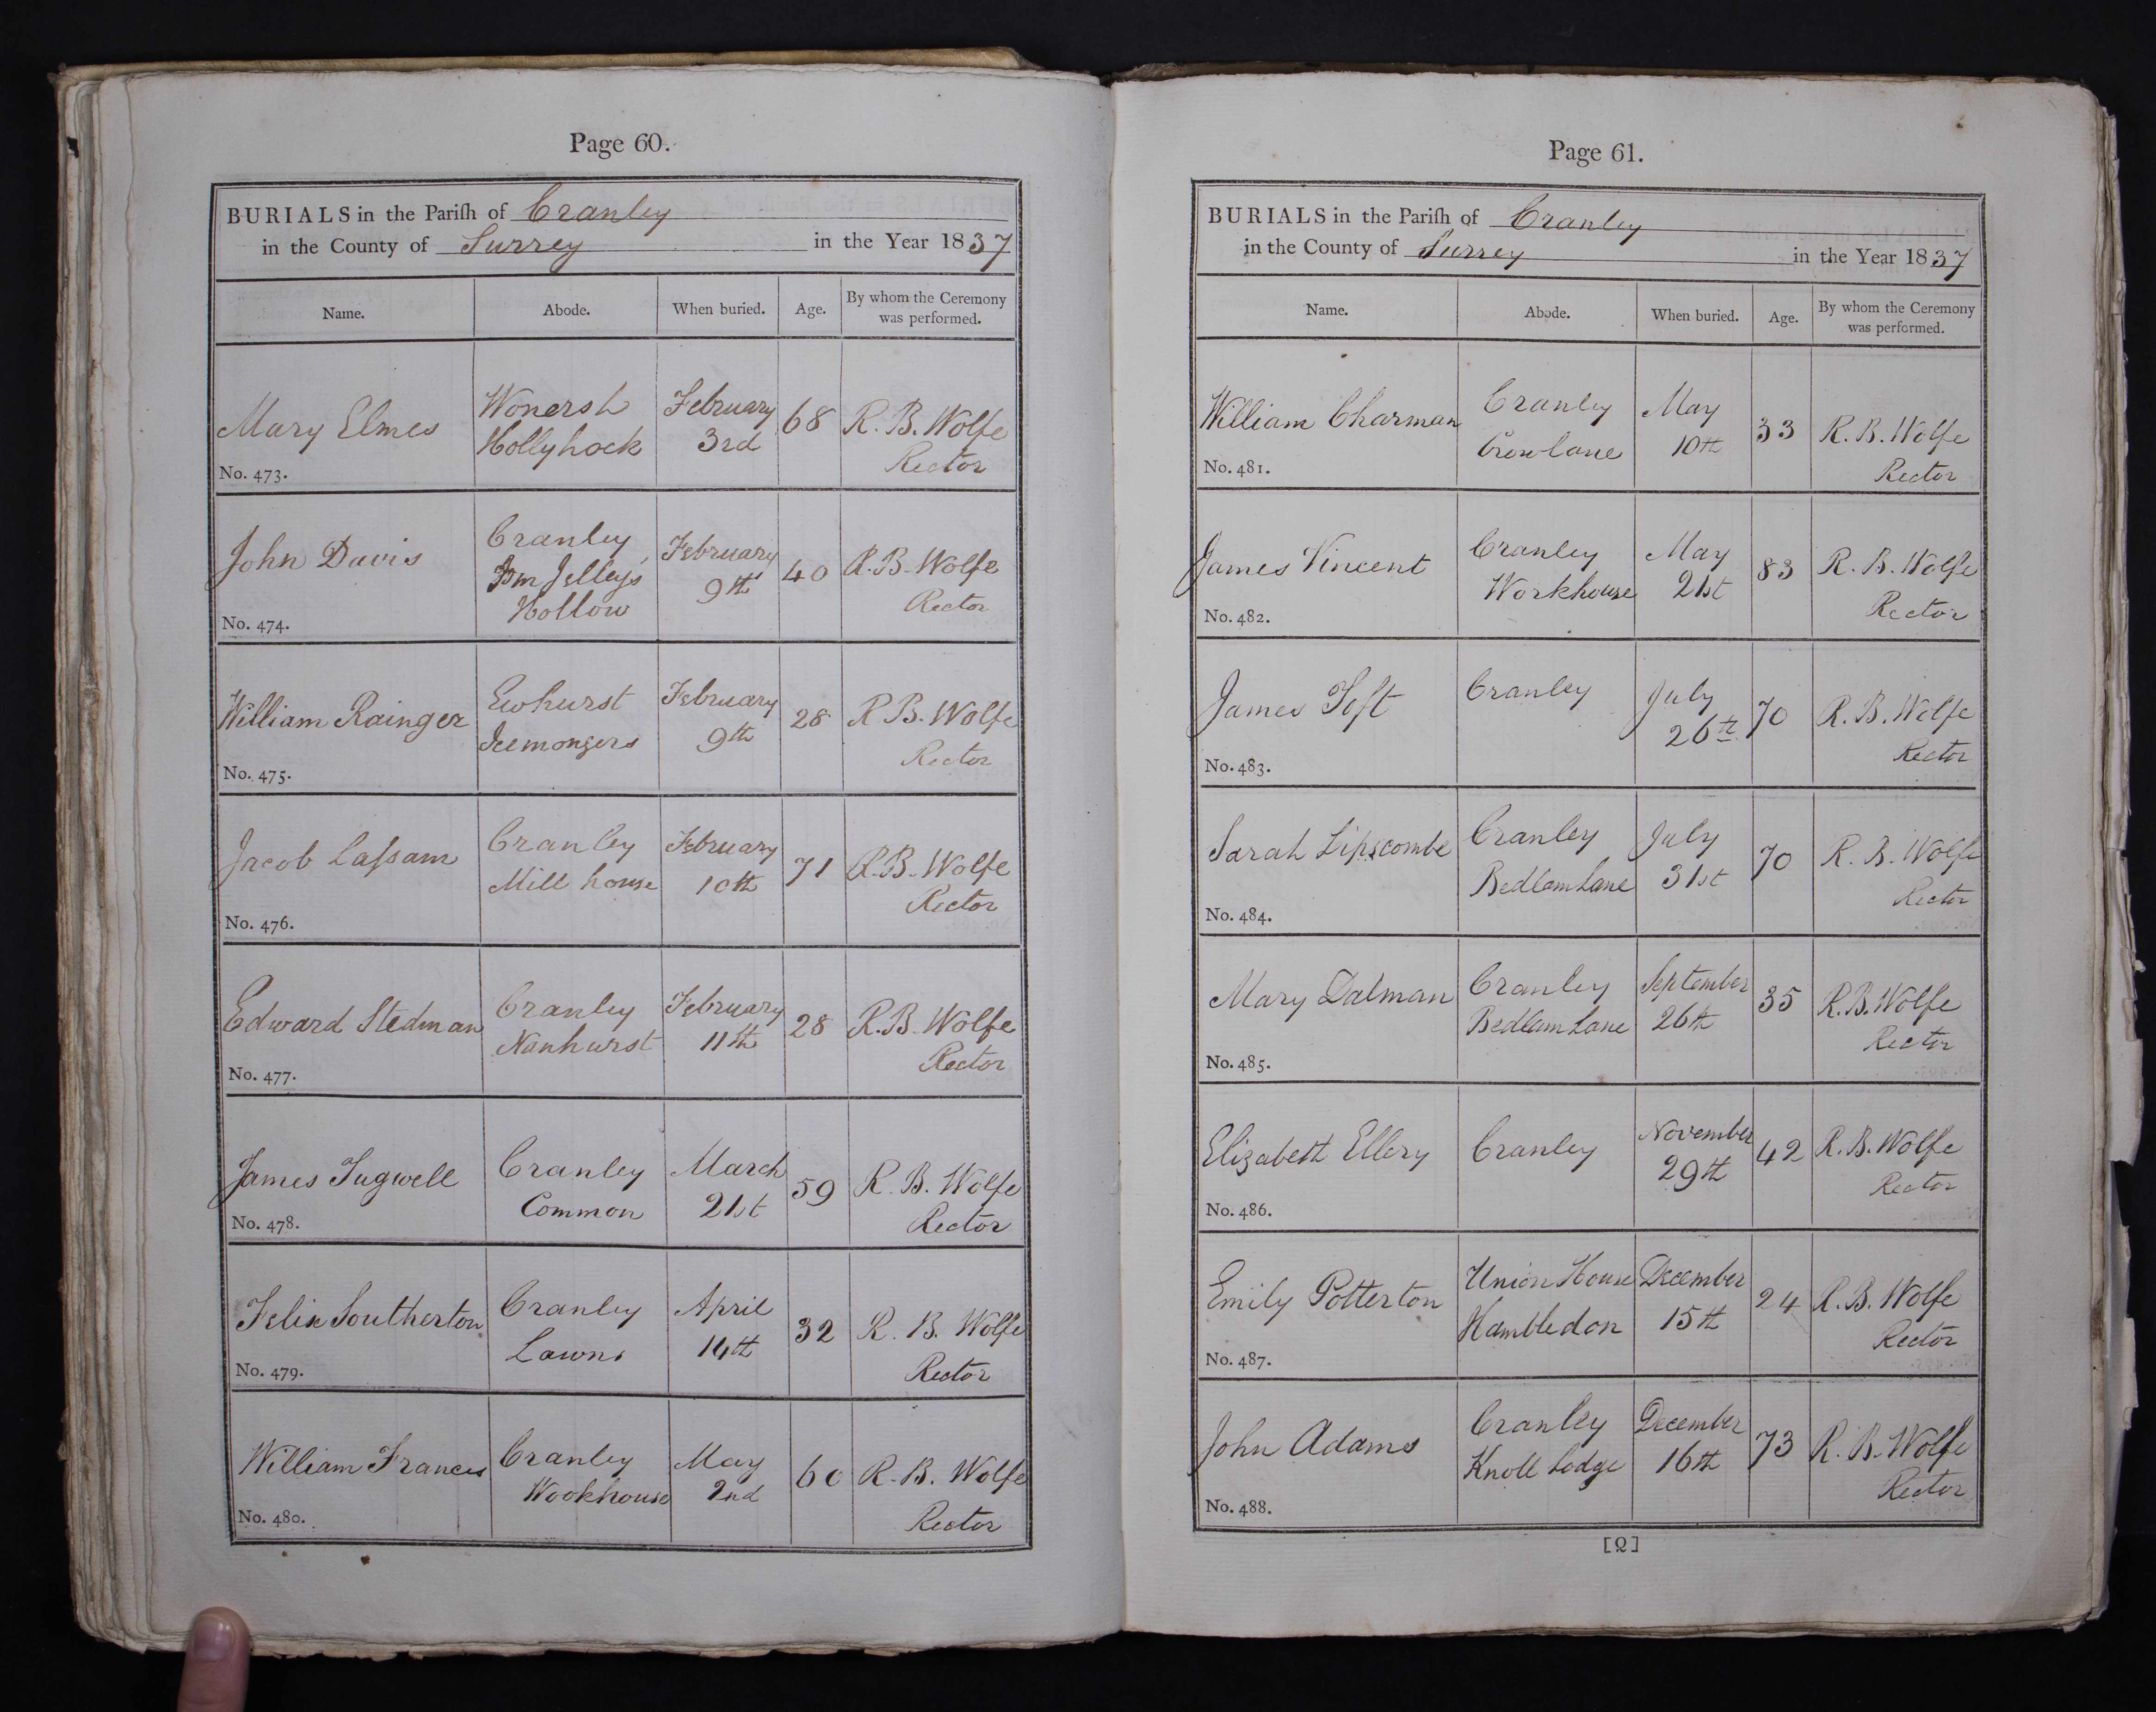 Page 60.
BURIALS in the Pariſh of Cranley
in the County of Surrey in the Year 1837
Name. Abode. When buried. Age. By whom the Ceremony was performed.
Mary Elmes Wonersh Hollyhock February 3rd 68 R. B. Wolfe Rector
No. 473.
John Davis Cranley Jelley's Hollow February 9th 40 R. B. Wolfe Rector
No. 474.
William Rainger Ewhurst Icemongers February 9th 28 R B. Wolfe Rector
No. 475.
Jacob Laſsam Cranley Mill house February 10th 71 R. B. Wolfe Rector
No. 476.
Edward Stedman Cranley Nanhurst February 11th 28 R. B. Wolfe Rector
No. 477.
James Tugwell Cranley Common March 21st 59 R. B. Wolfe Rector
No. 478.
Felix Southerton Cranley Lawns April 14th 32 R. B. Wolfe Rector
No. 479.
William Francis Cranley Wookhouse May 2nd 60 R. B. Wolfe Rector
No. 480.
Page 61.
BURIALS in the Pariſh of Cranley
in the County of Surrey in the Year 1837
Name. Abode. When buried. Age. By whom the Ceremony was performed.
William Charman Cranley Crowlane May 10th 33 R. B. Wolfe Rector
No. 481.
James Vincent Cranley Workhouse May 21st 83 R. B. Wolfe Rector
No. 482.
James Toft Cranley July 26th 70 R. B. Wolfe Rector
No. 483.
Sarah Lipscombe Cranley Bedlam Lane July 31st 70 R. B. Wolfe Rector
No. 484.
Mary Dalman Cranley Bedlam Lane September 26th 35 R. B. Wolfe Rector
No. 485.
Elizabeth Ellery Cranley November 29th 42 R. B. Wolfe Rector
No. 486.
Emily Potterton Union House Hambledon December 15th 24 R. B. Wolfe Rector
No. 487.
John Adams Cranley Knoll Lodge December 16th 73 R. B. Wolfe Rector
No. 488.